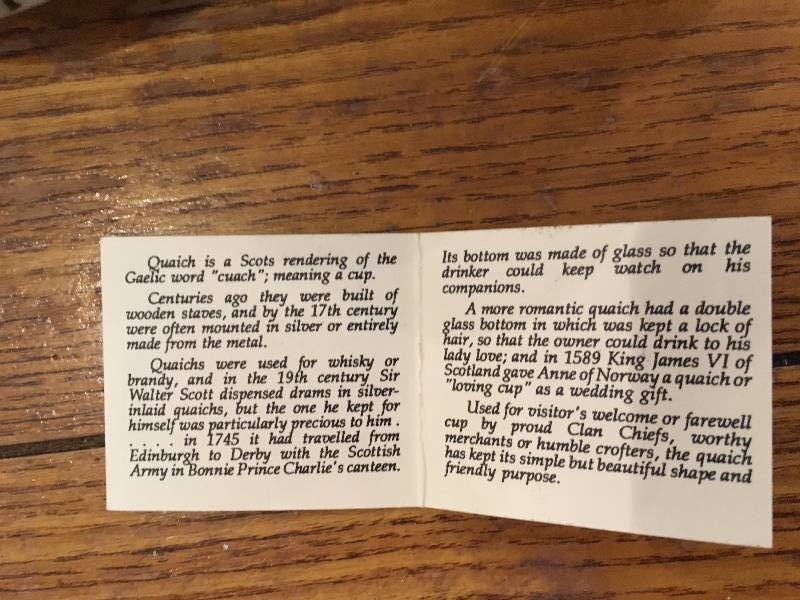 Quaich is a Scots rendering of the
Gaelic word "cuach"; meaning a cup.
Centuries ago they were built of
wooden staves, and by the 17th century
were often mounted in silver or entirely
made from the metal.
Quaichs were used for whisky or
brandy, and in the 19th century Sir
Walter Scott dispensed drams in silver-
inlaid quaichs, but the one he kept for
himself was particularly precious to him .
. . . . in 1745 it had travelled from
Edinburgh to Derby with the Scottish
Army in Bonnie Prince Charlie's canteen.
Its bottom was made of glass so that the
drinker could keep watch on his
companions.
A more romantic quaich had a double
glass bottom in which was kept a lock of
hair, so that the owner could drink to his
lady love; and in 1589 King James VI of
Scotland gave Anne of Norway a quaich or
"loving cup" as a wedding gift.
Used for visitor's welcome or farewell
cup by proud Clan Chiefs, worthy
merchants or humble crofters, the quaich
has kept its simple but beautiful shape and
friendly purpose.